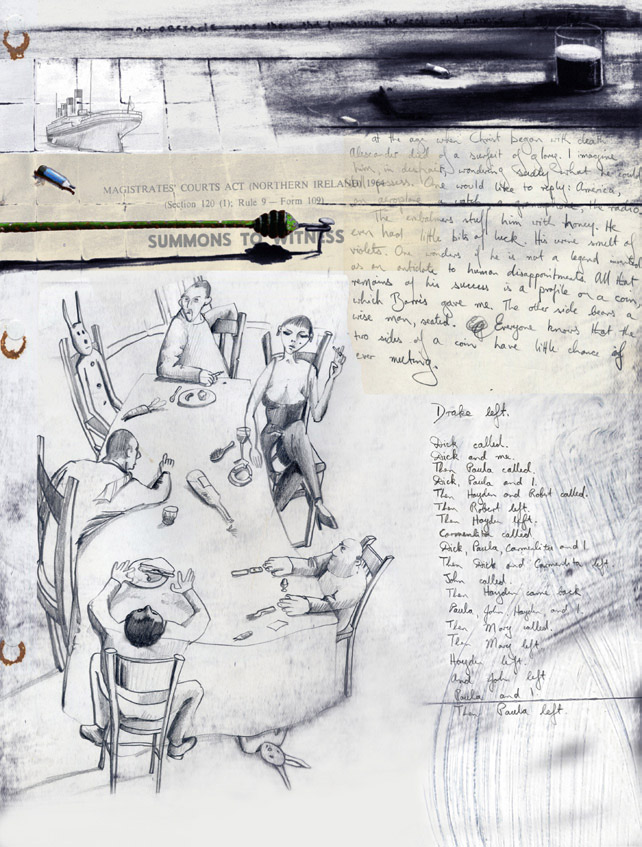 at the age when Christ began with death
Alexander died of a surfeit of glory. I imagine
him, in destrait, wondering sadly what he could
possess. One would like to reply: America,
an aeroplane, watch, the radio
MAGISTRATES' COURTS ACT (NORTHERN IRELAND) 1964
(Section 120 (1); Rule 9 — Form 109)
SUMMONS TO WITNESS
The embalmers stuff him with honey. He
even had little bits of luck. His urine smelt of
violets. One wonders if he is not a legend invented
as an antidote to human disappointments. All that
remains of his success is a profile on a coin
which Barris gave me. The other side bears a
wise man, seated. Everyone knows that the
two sides of a coin have little chance of
ever meeting.
Drake left.
Dick called.
Dick and me.
Then Paula called.
Dick, Paula and I.
Then Hayden and Robert called.
Then Robert left.
Then Hayden left.
Carmenlita called
Dick, Paula, Carmenlita and I
Then Dick and Carmenlita left.
John called.
Then Hayden came back
Paula, John, Hayden and I.
Then Mary called.
Then Mary left
Hayden left.
And John left
Paula and I
Then Paula left.